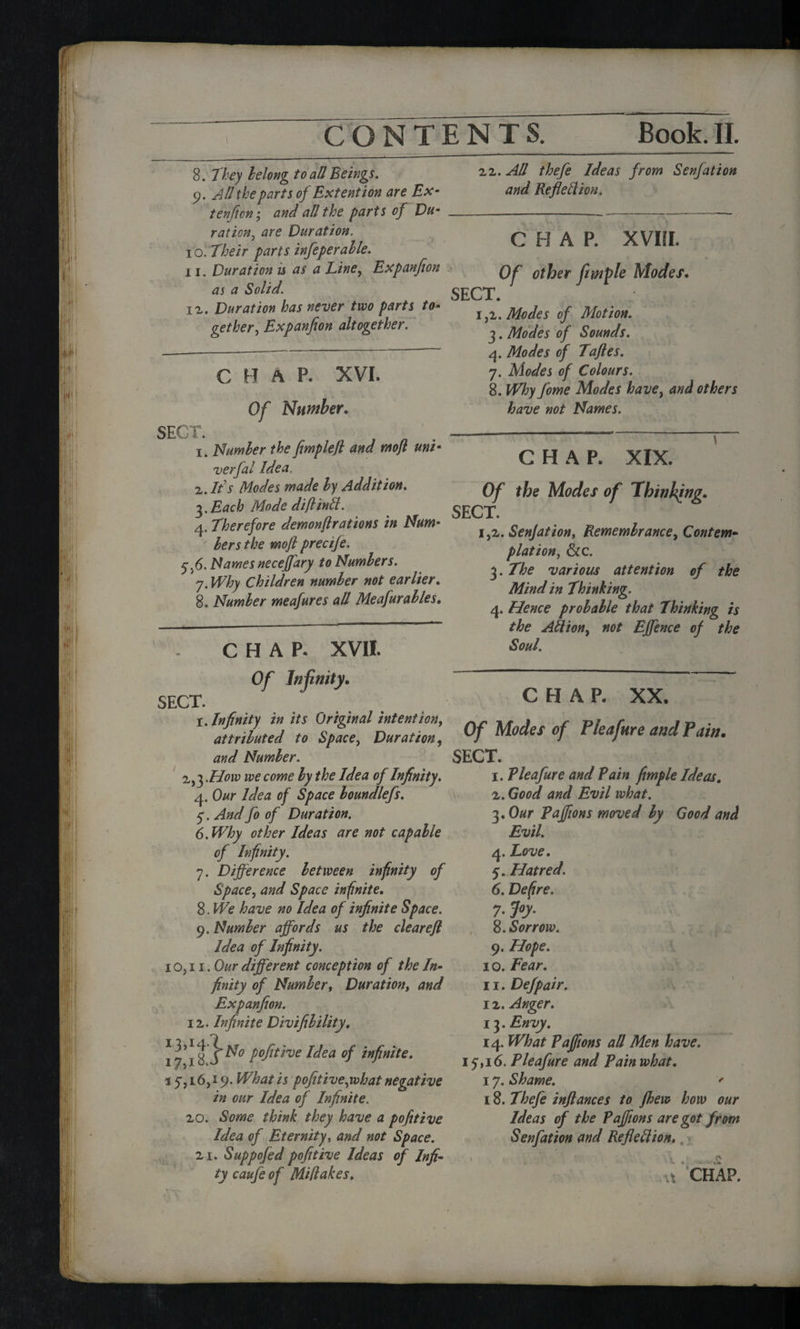 CONTENTS. Book. II.
8. They belong to all Beings.
9. All the parts of Extention are Ex-
tenſion; and all the parts of Du-
ration, are Duration.
10. Their parts inſeperable.
11. Duration is as a Line, Expanſion
as a Solid.
12. Duration has never two parts to-
gether, Expanſion altogether.
CHAP. XVI.
Of Number.
SECT.
1. Number the ſimpleſt and moſt uni-
verſal Idea.
2. It's Modes made by Addition.
3. Each Mode diſtinct.
4. Therefore demonſtrations in Num-
bers the moſt preciſe.
5,6. Names neceſſary to Numbers.
7. Why Children number not earlier.
8. Number meaſures all Meaſurables.
CHAP. XVII.
Of Infinity.
SECT.
1. Infinity in its Original intention,
attributed to Space, Duration,
and Number.
2,3. How we come by the Idea of Infinity.
4. Our Idea of Space boundleſs.
5. And ſo of Duration.
6. Why other Ideas are not capable
of Infinity.
7. Difference between infinity of
Space, and Space infinite.
8. We have no Idea of infinite Space.
9. Number affords us the cleareſt
Idea of Infinity.
10,11. Our different conception of the In-
finity of Number, Duration, and
Expanſion.
12. Infinite Diviſibility.
13,14.
17,18. } No poſitive Idea of infinite.
15,16,19. What is poſitive,what negative
in our Idea of Infinite.
20. Some think they have a poſitive
Idea of Eternity, and not Space.
21. Suppoſed poſitive Ideas of Infi-
ty cauſe of Miſtakes.
22. All theſe Ideas from Senſation
and Reflection.
CHAP. XVIII.
Of other ſimple Modes.
SECT.
1,2. Modes of Motion.
3. Modes of Sounds.
4. Modes of Taſtes.
7. Modes of Colours.
8. Why ſome Modes have, and others
have not Names.
CHAP. XIX.
Of the Modes of Thinking.
SECT.
1,2. Senſation, Remembrance, Contem-
plation, &c.
3. The various attention of the
Mind in Thinking.
4. Hence probable that Thinking is
the Action, not Eſſence of the
Soul.
CHAP. XX.
Of Modes of Pleaſure and Pain.
SECT.
1. Pleaſure and Pain ſimple Ideas.
2. Good and Evil what.
3. Our Paſſions moved by Good and
Evil.
4. Love.
5. Hatred.
6. Deſire.
7. Joy.
8. Sorrow.
9. Hope.
10. Fear.
11. Deſpair.
12. Anger.
13. Envy.
14. What Paſſions all Men have.
15,16. Pleaſure and Pain what.
17. Shame.
18. Theſe inſtances to ſhew how our
Ideas of the Paſſions are got from
Senſation and Reflection.
CHAP.